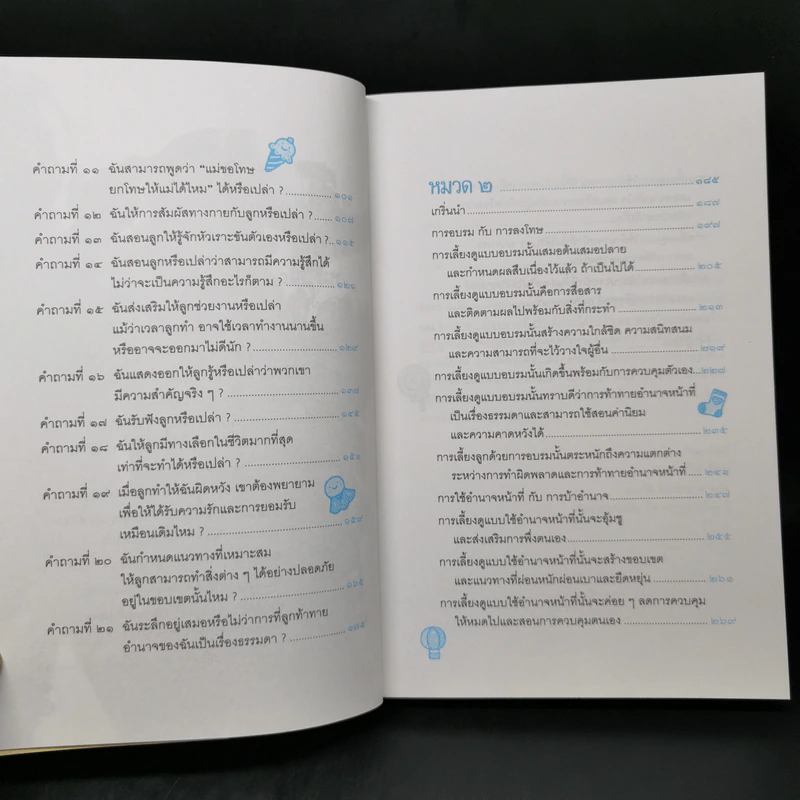 คำถามที่ ๑๑ ฉันสามารถพูดว่า "แม่ขอโทษ
ยกโทษให้แม่ได้ไหม" ได้หรือเปล่า ? ................ ๑๐๑
คำถามที่ ๑๒ ฉันให้การสัมผัสทางกายกับลูกหรือเปล่า ? ...... ๑๐๗
คำถามที่ ๑๓ ฉันสอนลูกให้รู้จักหัวเราะขันตัวเองหรือเปล่า ?.. ๑๑๕
คำถามที่ ๑๔ ฉันสอนลูกหรือเปล่าว่าสามารถมีความรู้สึกได้
ไม่ว่าจะเป็นความรู้สึกอะไรก็ตาม ? ................ ๑๒๑
คำถามที่ ๑๕ ฉันส่งเสริมให้ลูกช่วยงานหรือเปล่า
แม้ว่าเวลาลูกทำ อาจใช้เวลาทำงานนานขึ้น
หรืออาจจะออกมาไม่ดีนัก ? ......................... ๑๒๙
คำถามที่ ๑๖ ฉันแสดงออกให้ลูกรู้หรือเปล่าว่าพวกเขา
มีความสำคัญจริง ๆ ? ............................... ๑๓๗
คำถามที่ ๑๗ ฉันรับฟังลูกหรือเปล่า ? ............................ ๑๔๕
คำถามที่ ๑๘ ฉันให้ลูกมีทางเลือกในชีวิตมากที่สุด
เท่าที่จะทำได้หรือเปล่า ? ............................ ๑๕๑
คำถามที่ ๑๙ เมื่อลูกทำให้ฉันผิดหวัง เขาต้องพยายาม
เพื่อให้ได้รับความรักและการยอมรับ
เหมือนเดิมไหม ? .................................... ๑๕๙
คำถามที่ ๒๐ ฉันกำหนดแนวทางที่เหมาะสม
ให้ลูกสามารถทำสิ่งต่าง ๆ ได้อย่างปลอดภัย
อยู่ในขอบเขตนั้นไหม ? ............................. ๑๖๕
คำถามที่ ๒๑ ฉันระลึกอยู่เสมอหรือไม่ว่าการที่ลูกท้าทาย
อำนาจของฉันเป็นเรื่องธรรมดา ? ................ ๑๗๕
หมวด ๒ ................................................ ๑๘๕
เกริ่นนำ ................................................ ๑๘๗
การอบรม กับ การลงโทษ ................................ ๑๙๗
การเลี้ยงดูแบบอบรมนั้นเสมอต้นเสมอปลาย
และกำหนดผลสืบเนื่องไว้แล้ว ถ้าเป็นไปได้ ............ ๒๐๕
การเลี้ยงดูแบบอบรมนั้นคือการสื่อสาร
และติดตามผลไปพร้อมกับสิ่งที่กระทำ ................ ๒๑๓
การเลี้ยงดูแบบอบรมนั้นสร้างความใกล้ชิด ความสนิทสนม
และความสามารถที่จะไว้วางใจผู้อื่น .................. ๒๑๙
การเลี้ยงดูแบบอบรมนั้นเกิดขึ้นพร้อมกับการควบคุมตัวเอง.... ๒๒๘
การเลี้ยงดูแบบอบรมนั้นทราบดีว่าการท้าทายอำนาจหน้าที่
เป็นเรื่องธรรมดาและสามารถใช้สอนค่านิยม
และความคาดหวังได้ .................................. ๒๓๕
การเลี้ยงลูกด้วยการอบรมนั้นตระหนักถึงความแตกต่าง
ระหว่างการทำผิดพลาดและการท้าทายอำนาจหน้าที่ .... ๒๔๑
การใช้อำนาจหน้าที่ กับ การบ้าอำนาจ ...................... ๒๔๗
การเลี้ยงดูแบบใช้อำนาจหน้าที่นั้นจะอุ้มชู
และส่งเสริมการพึ่งตนเอง ............................ ๒๕๕
การเลี้ยงดูแบบใช้อำนาจหน้าที่นั้นจะสร้างขอบเขต
และแนวทางที่ผ่อนหนักผ่อนเบาและยืดหยุ่น .......... ๒๖๑
การเลี้ยงดูแบบใช้อำนาจหน้าที่นั้นจะค่อย ๆ ลดการควบคุม
ให้หมดไปและสอนการควบคุมตนเอง .................. ๒๖๙